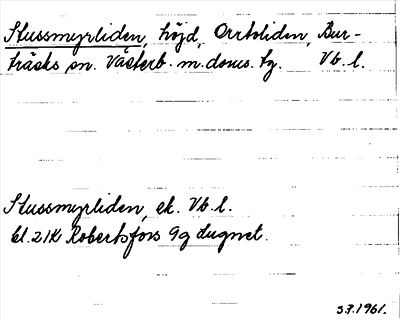 Stussmyrliden, höjd, Orrtoliden, Bur-
träsks sn. Västerb. m. doms. tg. Vb. l.
Stussmyrliden, ek. Vb. l.
bl. 21K Robertsfors 9g Lugnet.
3.7.1961.